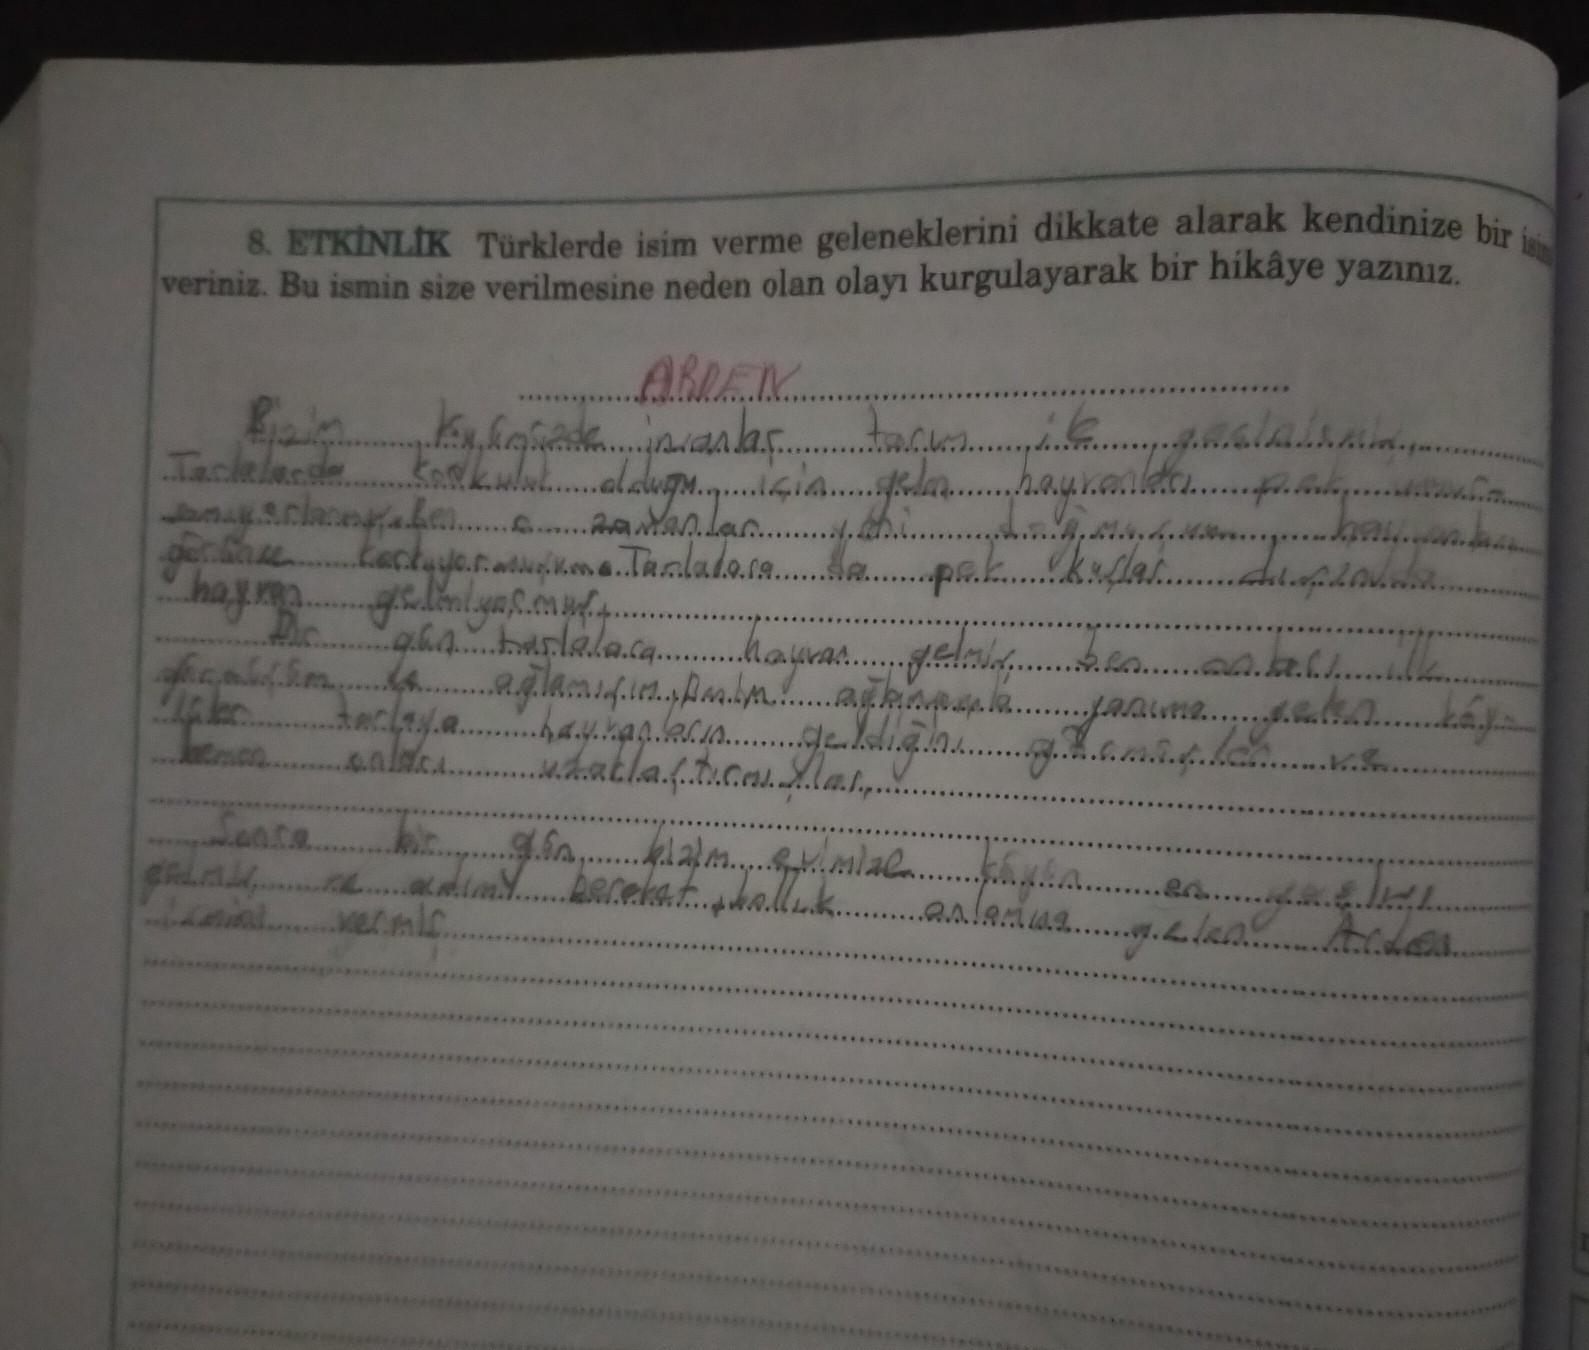 8. ETKİNLİK Türklerde isim verme geleneklerini dikkate alarak kendinize bir isim
veriniz. Bu ismin size verilmesine neden olan olayı kurgulayarak bir hikâye yazınız.
ARDEN
Bizim köyümüzde insanlar tarım ile
Tarlalarda korkuluk olduğu için gelen hayvanlar pek
ben o zamanlar yeni doğmuşum hayvanları
görünce korkuyormuşum. Tarlalara da pek kuşlar dışında
hayvan gelmiyormuş.
Bir gün tarlalara hayvan gelmiş ben onları ilk
görmüşüm ve ağlamışım. Benim ağlamamla yanıma gelen köy-
lüler tarlaya hayvanların geldiğini görmüşler ve
hemen onları uzaklaştırmışlar.
Sonra bir gün bizim evimize köyün en yaşlısı
gelmiş ve adımı bereket, bolluk anlamına gelen Arden
ismini vermiş